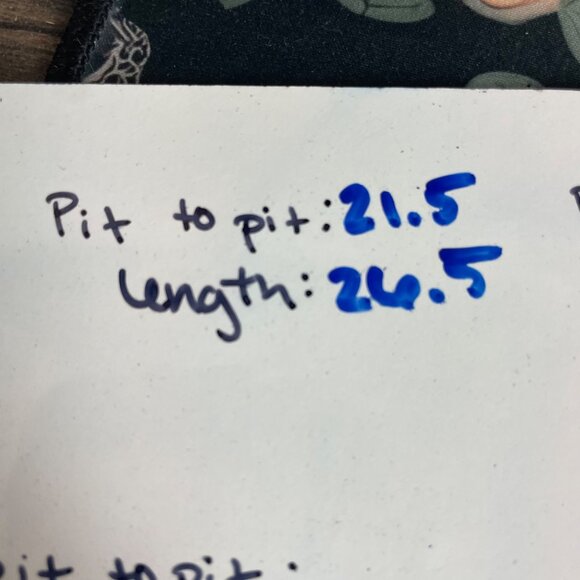 Pit to pit: 21.5
length: 26.5
Pit to pit: